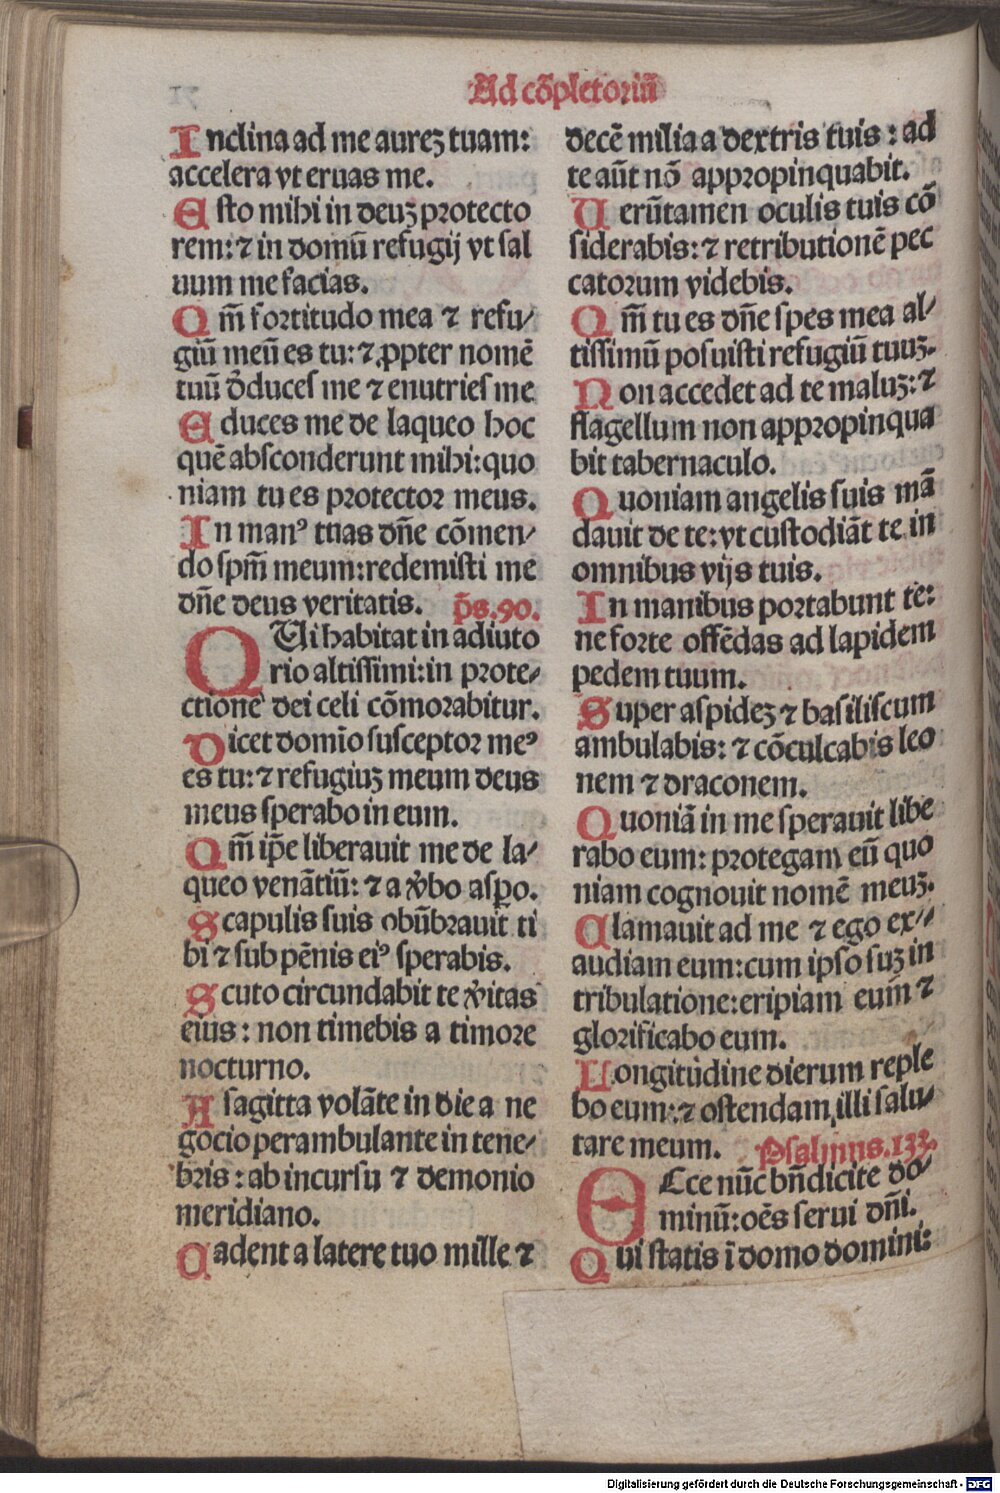 Ad cōpletoriū
Inclina ad me aureȝ tuam:
accelera vt eruas me.
Esto mihi in deuȝ protecto
rem: ⁊ in domū refugij vt sal
uum me facias.
Qm̄ fortitudo mea ⁊ refu/
giū meū es tu: ⁊ ꝓpter nomē
tuū d̄duces me ⁊ enutries me
Educes me de laqueo hoc
quē absconderunt mihi: quo
niam tu es protector meus.
In manꝰ tuas dn̄e cōmen/
do spm̄ meum: redemisti me
dn̄e deus veritatis. p̄s. 90.
QUi habitat in adiuto
rio altissimi: in prote/
ctione dei celi cōmorabitur.
Dicet domīo susceptor meꝰ
es tu: ⁊ refugiuȝ meum deus
meus sperabo in eum.
Qm̄ ip̄e liberauit me de la/
queo venātiū: ⁊ a v̄bo asꝑo.
Scapulis suis obūbrauit ti
bi ⁊ sub pēnis eiꝰ sperabis.
Scuto circundabit te v̄itas
eius: non timebis a timore
nocturno.
A sagitta volāte in die a ne
gocio perambulante in tene/
bris: ab incursu ⁊ demonio
meridiano.
Cadent a latere tuo mille ⁊
decē milia a dextris tuis: ad
te aūt nō appropinquabit.
Uerūtamen oculis tuis cō
siderabis: ⁊ retributionē pec
catorum videbis.
Qm̄ tu es dn̄e spes mea al/
tissimū posuisti refugiū tuuȝ.
Non accedet ad te maluȝ: ⁊
flagellum non appropinqua
bit tabernaculo.
Quoniam angelis suis mā
dauit de te: vt custodiāt te in
omnibus vijs tuis.
In manibus portabunt te:
ne forte offēdas ad lapidem
pedem tuum.
Super aspideȝ ⁊ basiliscum
ambulabis: ⁊ cōculcabis leo
nem ⁊ draconem.
Quoniā in me sperauit libe
rabo eum: protegam eū quo
niam cognouit nomē meuȝ.
Clamauit ad me ⁊ ego ex/
audiam eum: cum ipso suȝ in
tribulatione: eripiam eum ⁊
glorificabo eum.
Longitudine dierum reple
bo eum: ⁊ ostendam illi salu/
tare meum. Psalmus. 133.
ECce nūc bn̄dicite do/
minū: oēs serui dn̄i.
Qui statis ī domo domini:
Digitalisierung gefördert durch die Deutsche Forschungsgemeinschaft - DFG